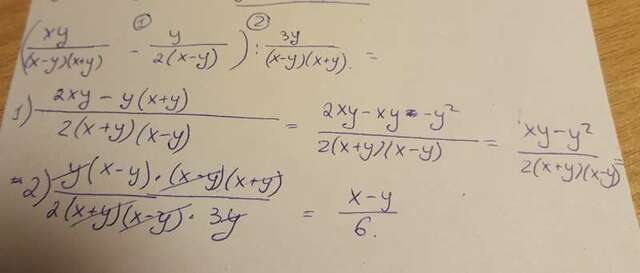 ① ②
(xy/((x-y)(x+y)) - y/(2(x-y))) : 3y/((x-y)(x+y)) =
1) (2xy - y(x+y))/(2(x+y)(x-y)) = (2xy - xy - y²)/(2(x+y)(x-y)) = (xy - y²)/(2(x+y)(x-y)) =
2) (y(x-y)·(x-y)(x+y))/(2(x+y)(x-y)·3y) = (x-y)/6.